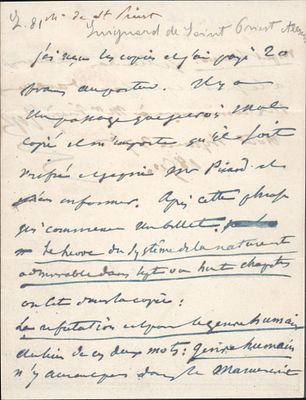 L. 81 Mr de St Priest
Guignard de Saint Priest
j'ai reçu les copies et j'ai payé 20
francs au porteur. Il y a
un passage que je crois mal
copié et il m'importe qu'il soit
vérifié je prie Mr Picard de
s'en informer. Après cette phrase
qui commence un billet,
Le livre du système de la nature est
admirable dans sept ou huit chapitres
on lit dans la copie:
la réfutation est pour le genre humain
au lieu de ces deux mots: genre humain
n'y aurait pas dans le Manuscrit